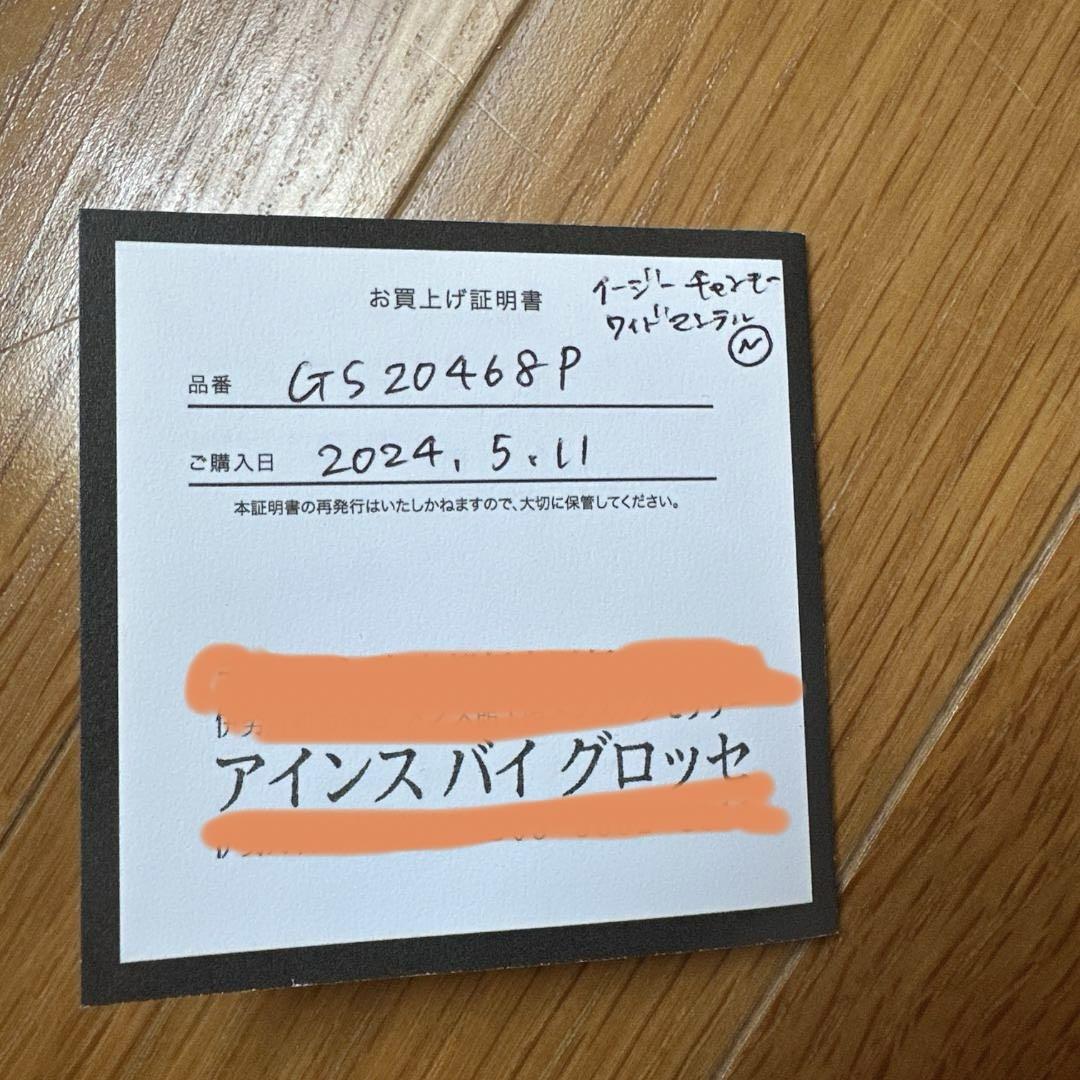 お買上げ証明書
イージーチャンキー
ワイドマンテル
N
品番 GS20468P
ご購入日 2024.5.11
本証明書の再発行はいたしかねますので、大切に保管してください。
アインス バイ グロッセ